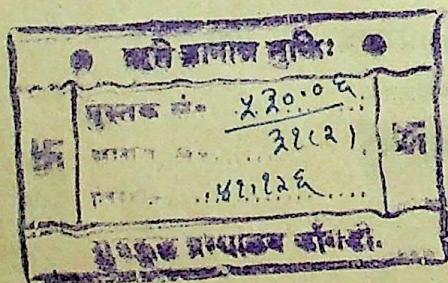 ऋते ज्ञानान्न मुक्तिः
पुस्तक सं० ५२०.०६
३१(२)
४१,१२६
गुरुकुल ग्रन्थालय काँगड़ी.